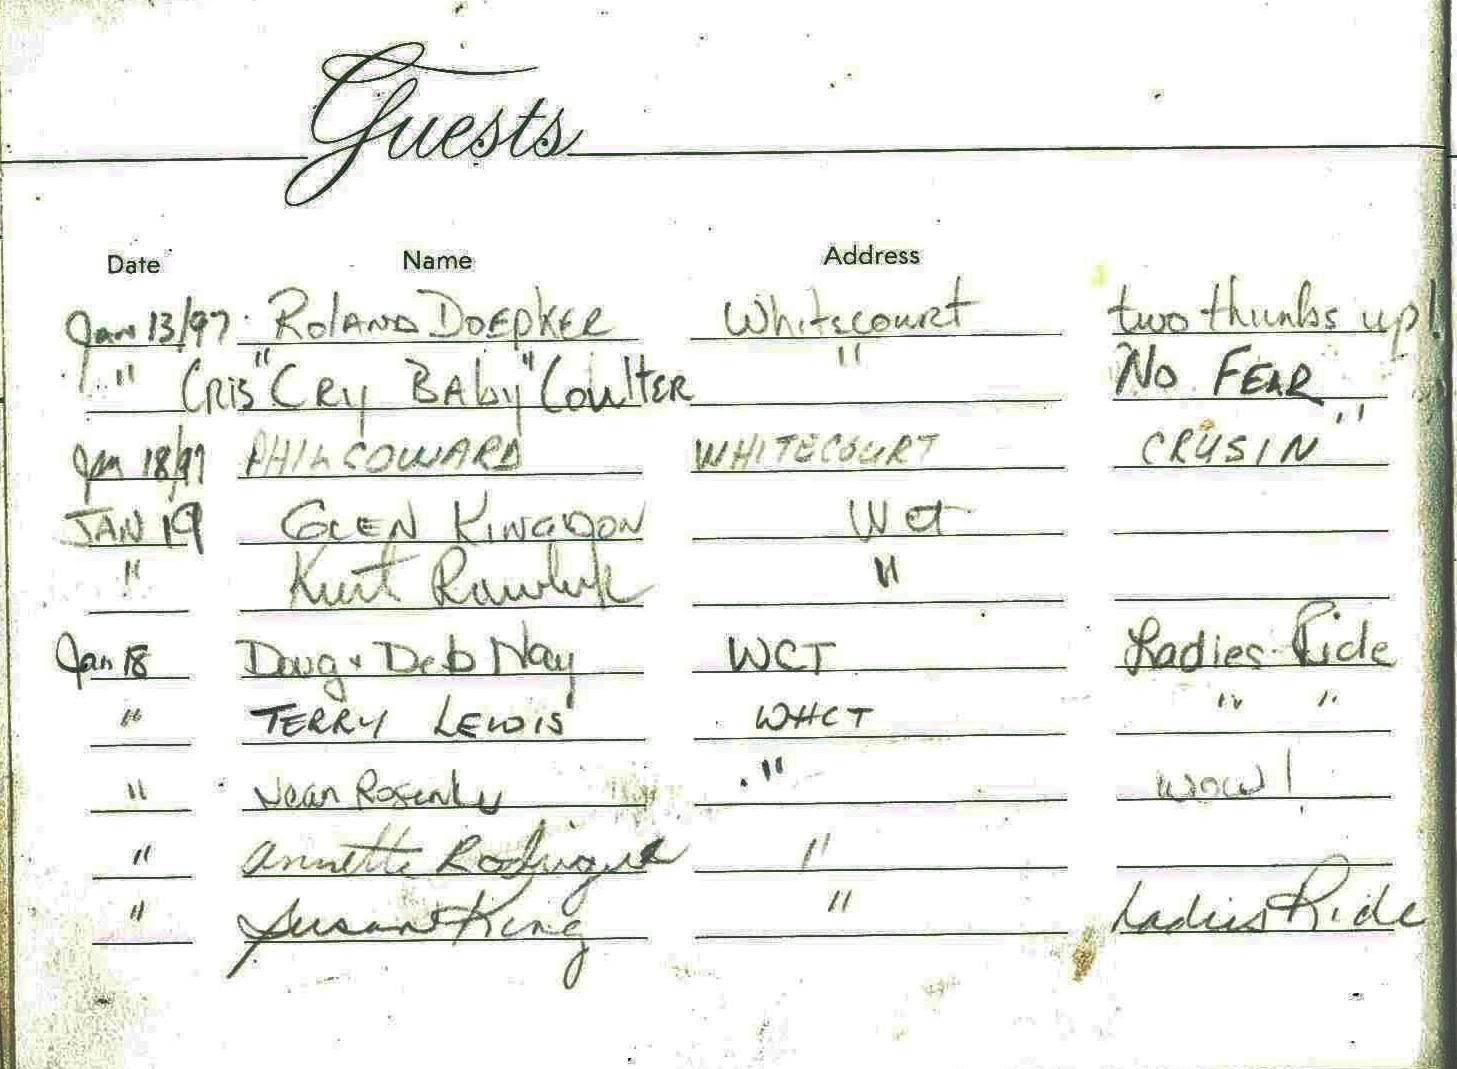 Guests
Date Name Address
Jan 13/97 Roland Doepker Whitecourt two thumbs up!
" Cris "Cry Baby" Coulter " No Fear
Jan 18/97 PHIL COWARD WHITECOURT CRUSIN''
JAN 19 GLEN KINGDON Wct
" Kurt "
Jan 18 Doug & Deb Nay WCT Ladies Ride
" TERRY LEWIS WHCT " "
" Jean " wow!
" Annette Rodrigue "
" Susan King " Ladies Ride